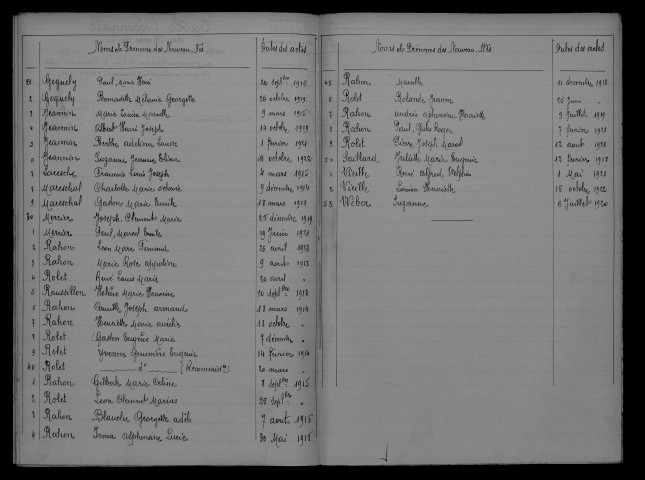 Noms et Prénoms des Nouveau-Nés Dates des actes
21 Goguely Paul Marie Henri 22 sept bre 1918
2 Goguely Bernadette Mélanie Georgette 24 octobre 1919
3 Jeannin Marie Louise Marcelle 9 mars 1915
4 Jeannin Albert Henri Joseph 14 octobre 1919
5 Jeannin Berthe Adeline Louise 1 février 1921
6 Jeannin Suzanne Jeanne Elisa 11 octobre 1922
7 Laresche Francois Louis Joseph 4 mars 1916
8 Mareschal Charlotte Marie Octavie 9 décembre 1914
9 Mareschal Gaston Marie Emile 18 mars 1918
30 Mercier Joseph Clément Marie 25 décembre 1919
1 Mercier Paul Marcel Emile 19 Juin 1921
2 Rahon Léon Marie Fernand 26 avril 1913
3 Rahon Marie Rose Appoline 9 août 1913
4 Rolet René Louis Marie 20 avril "
5 Roussillon Hélène Marie Honorine 10 sept bre 1913
6 Rahon Camille Joseph Armand 18 mars 1914
7 Rahon Henriette Marie Amélie 18 octobre "
8 Rolet Gaston Eugène Marie 7 décembre "
9 Rolet Yvonne Geneviève Eugénie 24 février 1914
40 Rolet d° (Reconnaiss ce) 20 mars "
1 Rahon Gilberte Marie Céline 8 sept bre 1915
2 Rolet Léon Clément Marius 28 sept bre "
3 Rahon Blanche Georgette Adèle 7 août 1916
4 Rahon Irma Alphonsine Lucie 30 Mai 1918
Noms et Prénoms des Nouveau-Nés Dates des actes
45 Rahon Marcelle 11 décembre 1918
6 Rolet Rolande Jeanne 26 Juin "
7 Rahon Andrée Alphonsine Henriette 9 Juillet 1919
8 Rahon Paul Roger 7 février 1921
9 Rolet Pierre Joseph Marcel 12 août 1921
50 Gaillard Juliette Marie Eugénie 12 février 1918
1 Vieille René Alfred Delphin 1 Mai 1921
2 Vieille Louise Henriette 18 octobre 1922
53 Wéber Suzanne 8 Juillet 1920